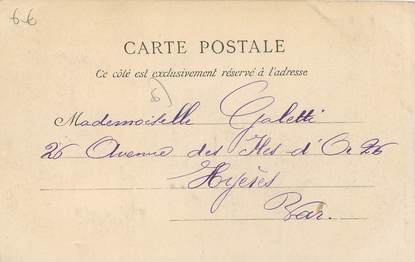 6-6
CARTE POSTALE
Ce côté est exclusivement réservé à l'adresse
6
Mademoiselle Galetti
26 Avenue des Iles d'Or 26
Hyères
Var.